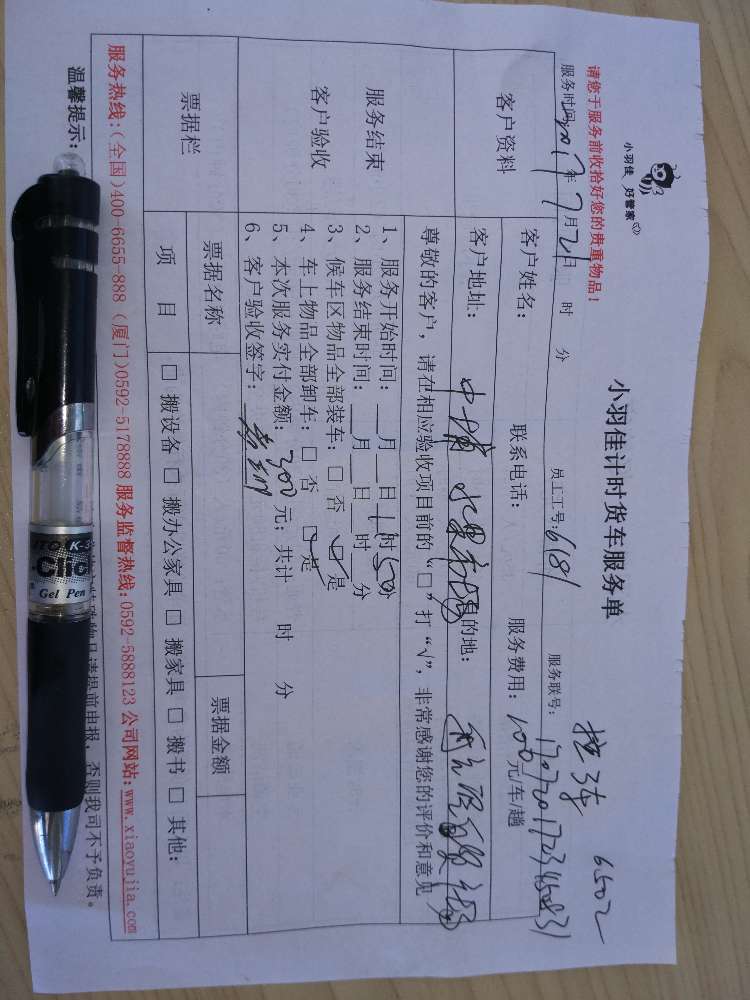 小羽佳 好管家
小羽佳计时货车服务单
6502
请您于服务前收拾好您的贵重物品！
服务时间: 2017年7月21日 时 分 员工工号: 6181 服务联号:
客户资料 客户姓名: 联系电话: 服务费用: 100元/车/趟
客户地址: 水果 的地:
服务结束
客户验收
尊敬的客户，请在相应验收项目前的“□”打“√”，非常感谢您的评价和意见
1、服务开始时间: 月 日 1时50分
2、服务结束时间: 月 日 时 分
3、候车区物品全部装车: □ 否 ☑ 是
4、车上物品全部卸车: □ 否 ☑ 是
5、本次服务实付金额: 300元; 共计 时 分
6、客户验收签字:
票据栏 票据名称 票据金额
项 目 □ 搬设备 □ 搬办公家具 □ 搬家具 □ 搬书 □ 其他:
服务热线:(全国)400-6655-888 (厦门)0592-5178888 服务监督热线: 0592-5888123 公司网站: www.xiaoyujia.com
温馨提示: 物品请提前申报，否则我司不予负责。
K-3
Gel Pen